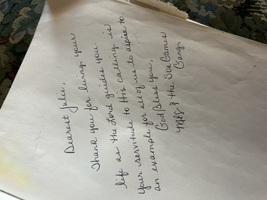 Dearest Julie,
Thank you for living your
life as the Lord guides you
Your servitude to His calling is
an example for all of us to aspire to.
God Bless You,
& the Ice Cames
Gang